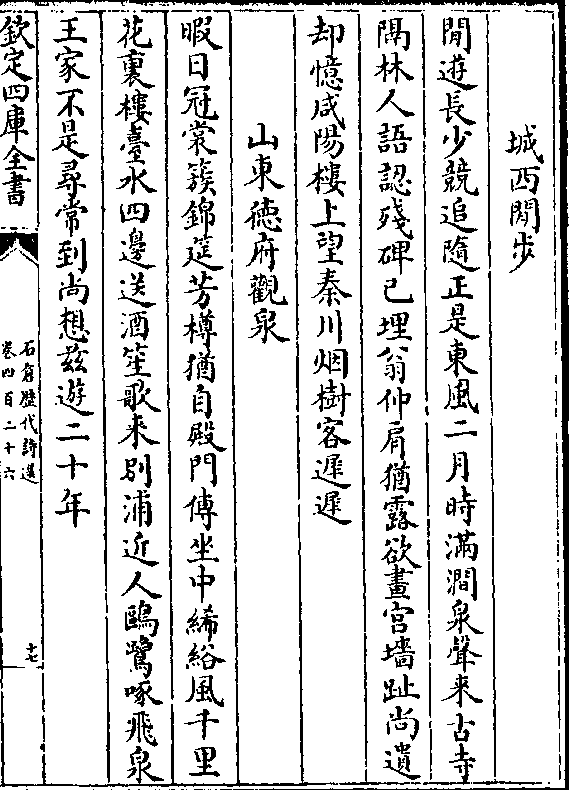 城西閒步
閒遊長少競追隨正是東風二月時滿澗泉聲來古寺
隔林人語認殘碑已埋翁仲肩猶露欲畫宫墻趾尚遺
却憶咸陽樓上望秦川烟樹客遲遲
山東德府觀泉
暇日冠裳簇錦筵芳樽猶自殿門傳坐中絺綌風千里
花裏樓臺水四邊送酒笙歌来别浦近人鷗鷺啄飛泉
王家不是尋常到尚想兹遊二十年
欽定四庫全書
石倉歷代詩選
卷四百二十六
十七